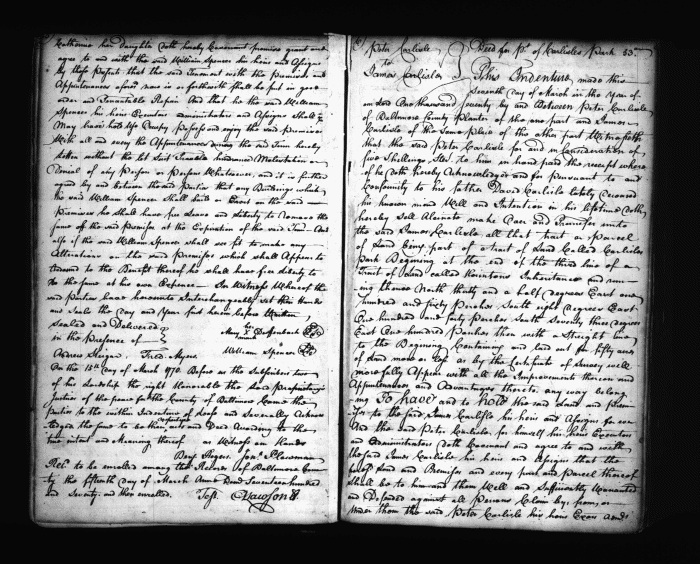 Katherine her Daughter doth hereby Covenant promise grant and
agree to and with the said William Spencer his heirs and Assigns
by these presents that the said Tenement with the Premises and
Appurtenances afore said is or forthwith shall be put in good
order and Tenantable Repair And that he the said William
Spencer his heirs Executors administrators and Assigns Shall &
May have hold use Occupy Possess and enjoy the said premises
With all and every the Appurtenances during the said Term hereby
taken without the let Suit Trouble hindrance Molestation or
Denial of any Person or Persons Whatsoever, and it is further
agreed by and between the said Parties that any Buildings which
the said William Spencer Shall build or Erect on the said
Premises he shall have free Leave and Liberty to Remove the
same off the said premises at the Expiration of the said Term And
also if the said William Spencer shall see fit to make any
Alterations in the said Premises which shall Appear to
tend to the Benefit thereof he shall have free liberty to
do the same at his own Expence - In Witness Whereof the
said Parties have hereunto Interchangeably set their Hands
and Seals the day and Year first herein before Written,
Sealed and Delivered
in the presence of
Mary Diffenbach
mark
William Spencer
Andrew Steigar, Fred. Myers
On the 15th day of March 1770. Before us the Subscribers two
of his Lordship the right Honorable the Lord Proprietary's
Justices of the peace for the County of Baltimore Came the
parties to the within Indenture of Lease and Severally Acknow
ledged the same to be their act and Deed According to the
true intent and Meaning thereof as Witness our Hands
Benj. Rogers. Jon. Plowman
Recd. to be enrolled among the Records of Baltimore Coun
ty the fifteenth day of March Anno Dom Seventeen hundred
and Seventy and then enrolled. Test. Lawson
Peter Carlisle Deed for pt. of Carlisles Park 53
to
James Carlisle This Indenture, made this
Seventh day of March in the Year of
our Lord One thousand seventy by and Between Peter Carlisle
of Baltimore County Planter of the one part and James
Carlisle of the same place of the other part Witnesseth
that the said Peter Carlisle for and in Consideration of
five Shillings Ster. to him in hand paid the receipt where
of he doth hereby Acknowledge and for pursuant to and
Conformity to his father David Carlisle lately deceased
his known mind Will and Intention in his lifetime doth
hereby sell Alienate make Over and Transfer unto
the said James Carlisle all that tract or parcel
of Land being part of a tract of Land Called Carlisles
Park Begining at the end of the third line of a
Tract of Land called Inheritance and run
ing thence North thirty and a half degrees East one
hundred and sixty Perches South eight degrees East
One hundred and forty perches South Seventy three degrees
East One hundred Perches then with a Straight line
to the Begining Containing and laid out for fifty acres
of Land more or less as by the Certificate of Survey will
more fully Appear with all the Improvements thereon and
Appurtenances and Advantages thereto any way belong
ing To have and to hold the said Land and premi
ses to the said James Carlisle his heirs and Assigns for ever
And the said Peter Carlisle for himself his heirs Executors
and Administrators doth Covenant and agree to and with
the said James Carlisle his heirs and assigns that the
said Land and Premises and every part and Parcel thereof
Shall be to him and them Well and Sufficiently Warranted
and Defended against all Persons Claim by, from, or
under them the said Peter Carlisle his heirs Exors Admrs